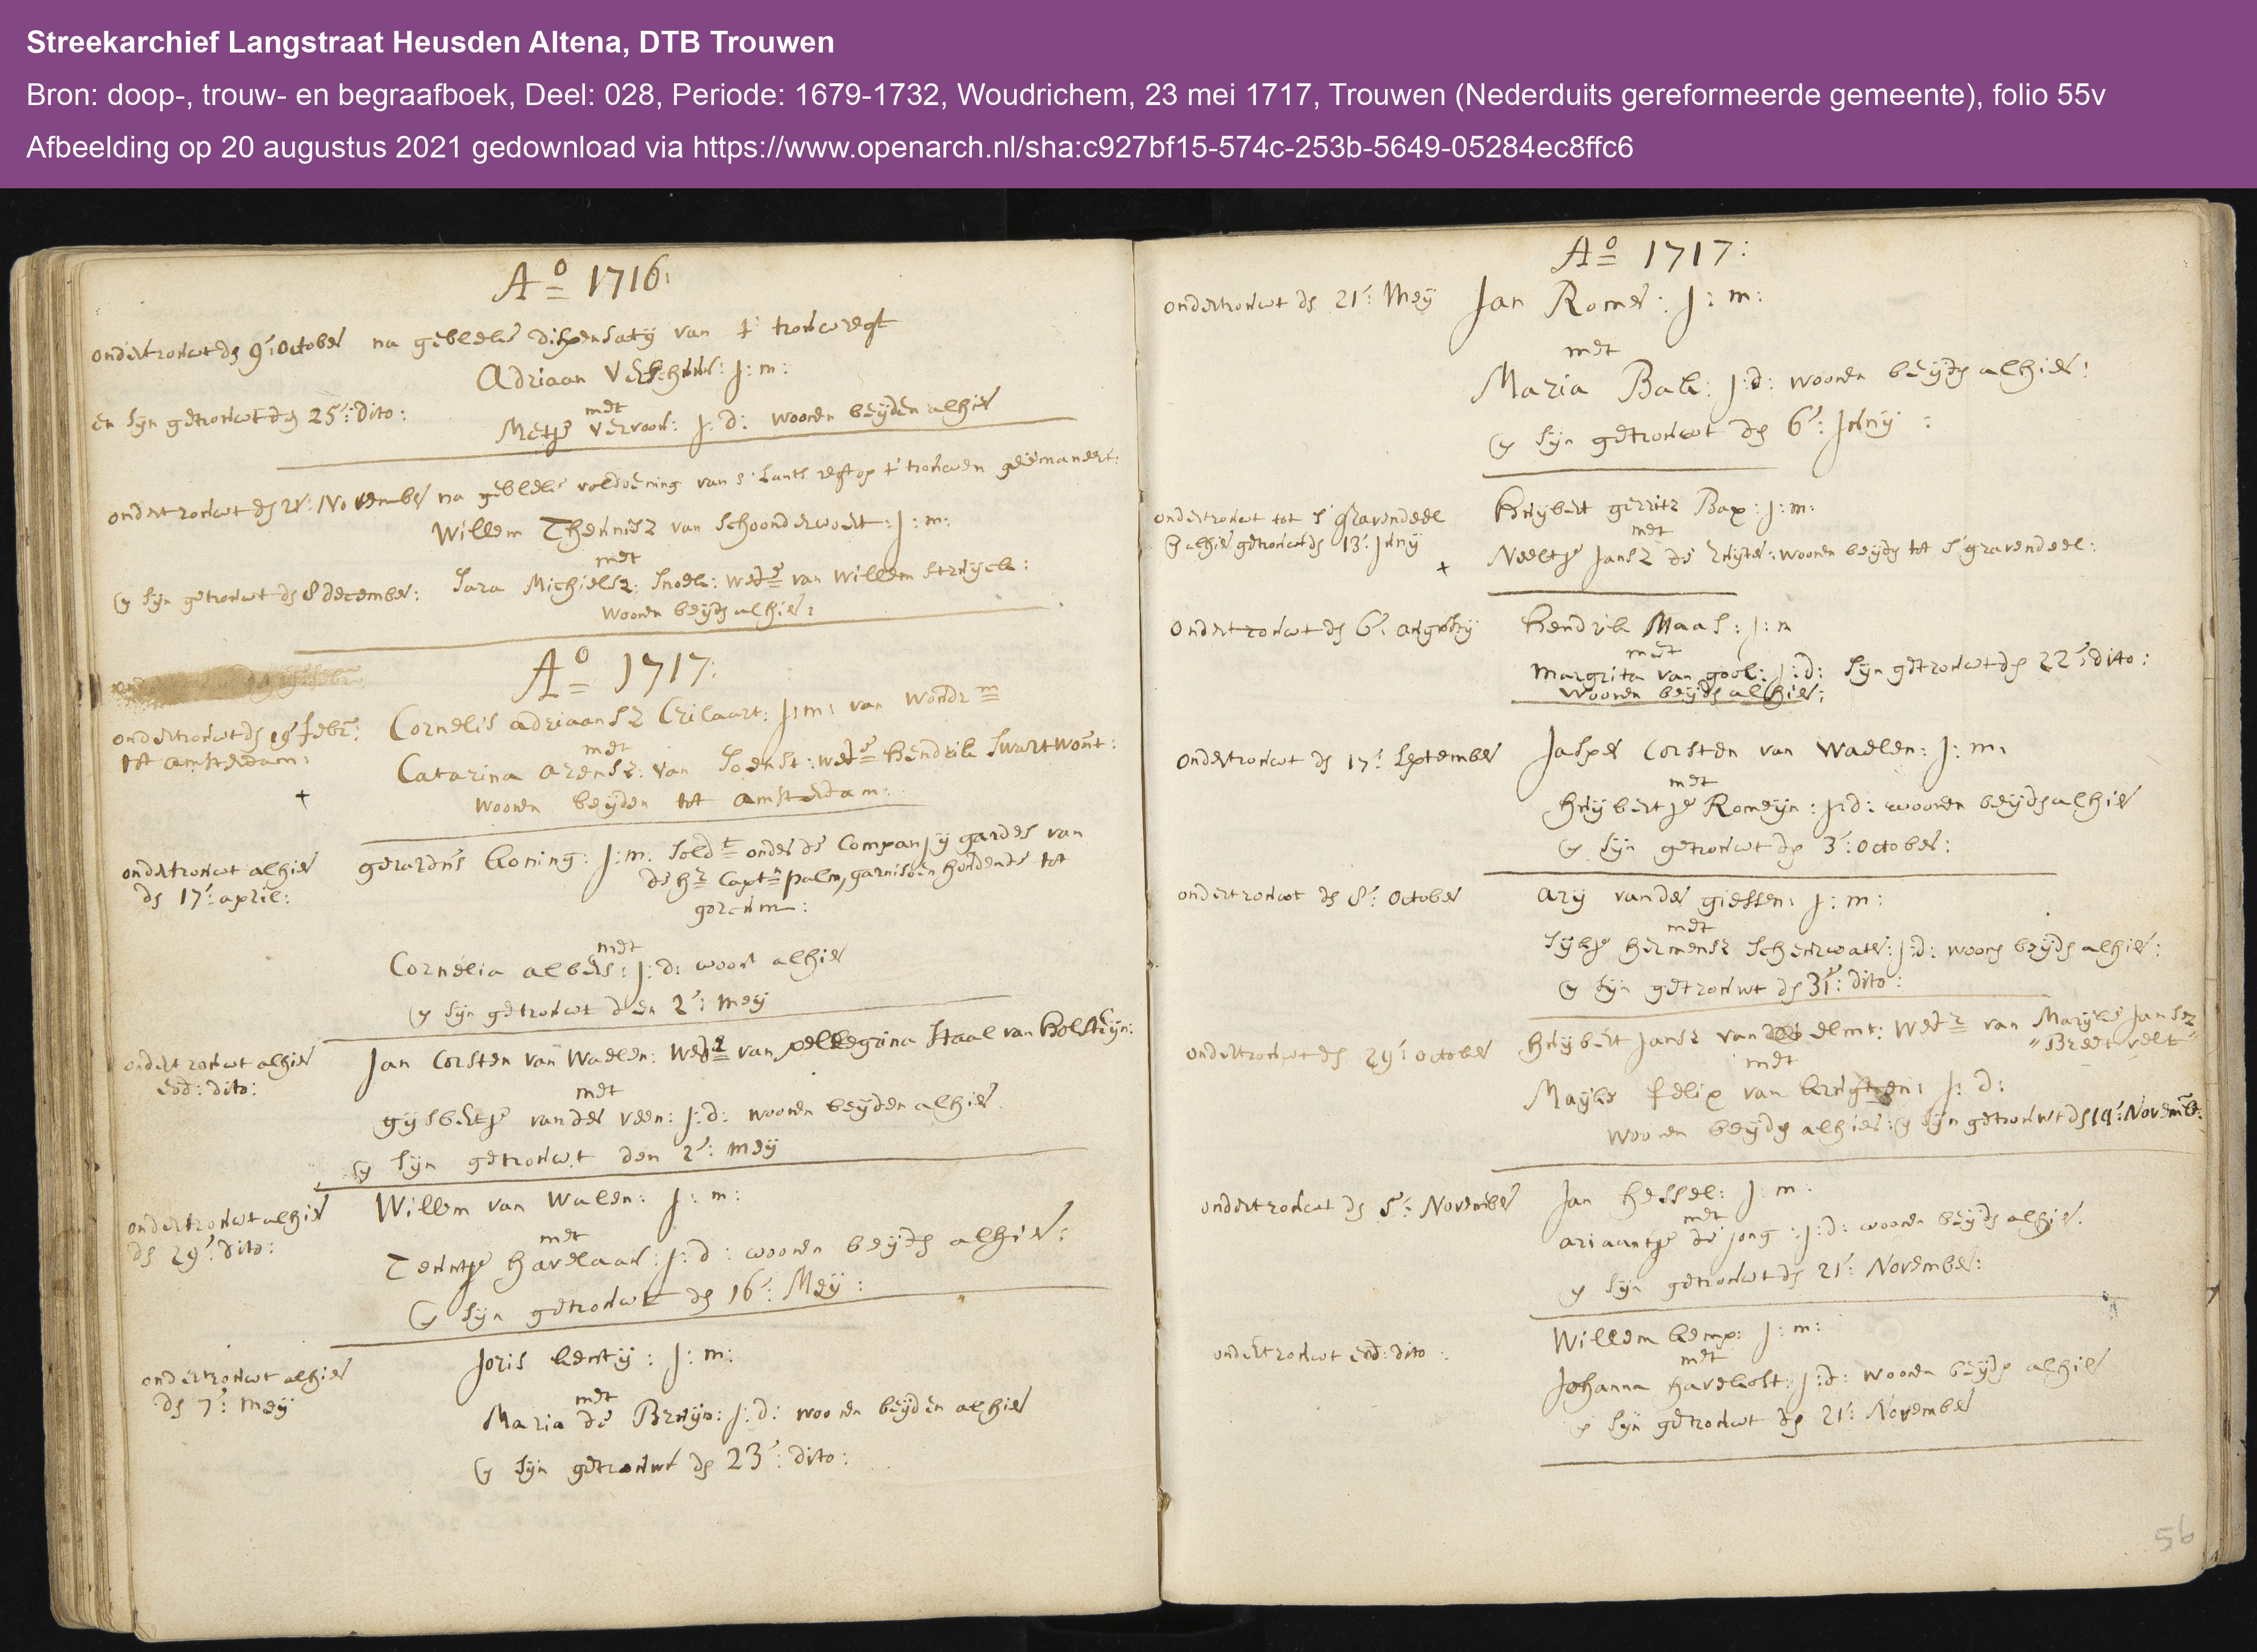 Streekarchief Langstraat Heusden Altena, DTB Trouwen
Bron: doop-, trouw- en begraafboek, Deel: 028, Periode: 1679-1732, Woudrichem, 23 mei 1717, Trouwen (Nederduits gereformeerde gemeente), folio 55v
Afbeelding op 20 augustus 2021 gedownload via https://www.openarch.nl/sha:c927bf15-574c-253b-5649-05284ec8ffc6
Ao 1716:
ondertrouwt de 9: October na gebleke dispensatij van t' trouwregt
Adriaan j: m:
met
en sijn getrouwt den 25: dito:
Metje Vervoorn: j: d: woonen beijden alhier
ondertrouwt de November na gebleke voldoening van s' Lants regt op t' trouwen geëmaneert:
Willem Theunisz van Schoonderwoert: j: m:
met
Sara Michielsz: Snoek: wede van Willem Struijck:
en sijn getrouwt de 8 december:
woonen beijde alhier:
Ao 1717:
ondertrouwt de 19 febr:
tot amsterdam:
Cornelis adriaansz Crilaart: j: m: van Woudrm
met
Catarina arensz: van Soenst: wede Hendrik Swartwout:
woonen beijden tot amsterdam:
ondertrouwt alhier
de 17: april:
gerardus koning: j: m: soldt onder de Companjij gardes van
de hr Captn palm, garnisoen houdende tot
gorcum:
met
Cornelia albers: j: d: woont alhier
en sijn getrouwt den 2: meij
ondertrouwt alhier
eod: dito:
Jan Corsten van Waelen: wedr van pellegrina Staal van Holsteijn:
met
gijsbertje vander veen: j: d: woonen beijden alhier
en sijn getrouwt den 2: meij
ondertrouwt alhier
de 29: dito:
Willem van Walen: j: m:
met
Teuntje havelaar: j: d: woonen beijde alhier:
en sijn getrouwt de 16: Meij:
ondertrouwt alhier
de 7: meij
Joris j: m:
met
Maria de Bruijn: j: d: woonen beijden alhier
en sijn getrouwt de 23: dito:
Ao 1717:
ondertrouwt de 21: Meij Jan Romer: j: m:
met
Maria Bak: j: d: woonen beijde alhier:
en sijn getrouwt de 6: Junij:
ondertrouwt tot s' gravendeel
en alhier getrouwt de 13: Junij
Huijbert gerritz Bax: j: m:
met
Neeltje Jansz de Ruijter: woonen beijde tot s' gravendeel:
ondertrouwt de 6: augustij Hendrik Maas: j: m
met
Margrita van gool: j: d: sijn getrouwt de 22: dito:
woonen beijde alhier:
ondertrouwt de 17: September Jasper Corsten van Waelen: j: m:
met
Huijbertje Romeijn: j: d: woonen beijde alhier
en sijn getrouwt de 3: October:
ondertrouwt de 8: October Arij vander giessen: j: m:
met
Sijtje hermensz Scheurwater: j: d: woone beijde alhier:
en sijn getrouwt de 31: dito:
ondertrouwt de 29: October Huijbert Jansz vander elmt: wedr van Maijke Jansz
Breetvelt
met
Maijke felix van j: d:
woonen beijde alhier: en sijn getrouwt de 14: Novemb:
ondertrouwt de 5: November Jan Hessel: j: m:
met
ariaantje de jong: j: d: woonen beijde alhier.
en sijn getrouwt de 21: November:
ondertrouwt eod: dito: Willem kemp: j: m:
met
Johanna havekost: j: d: woonen beijde alhier
en sijn getrouwt de 21: November
56